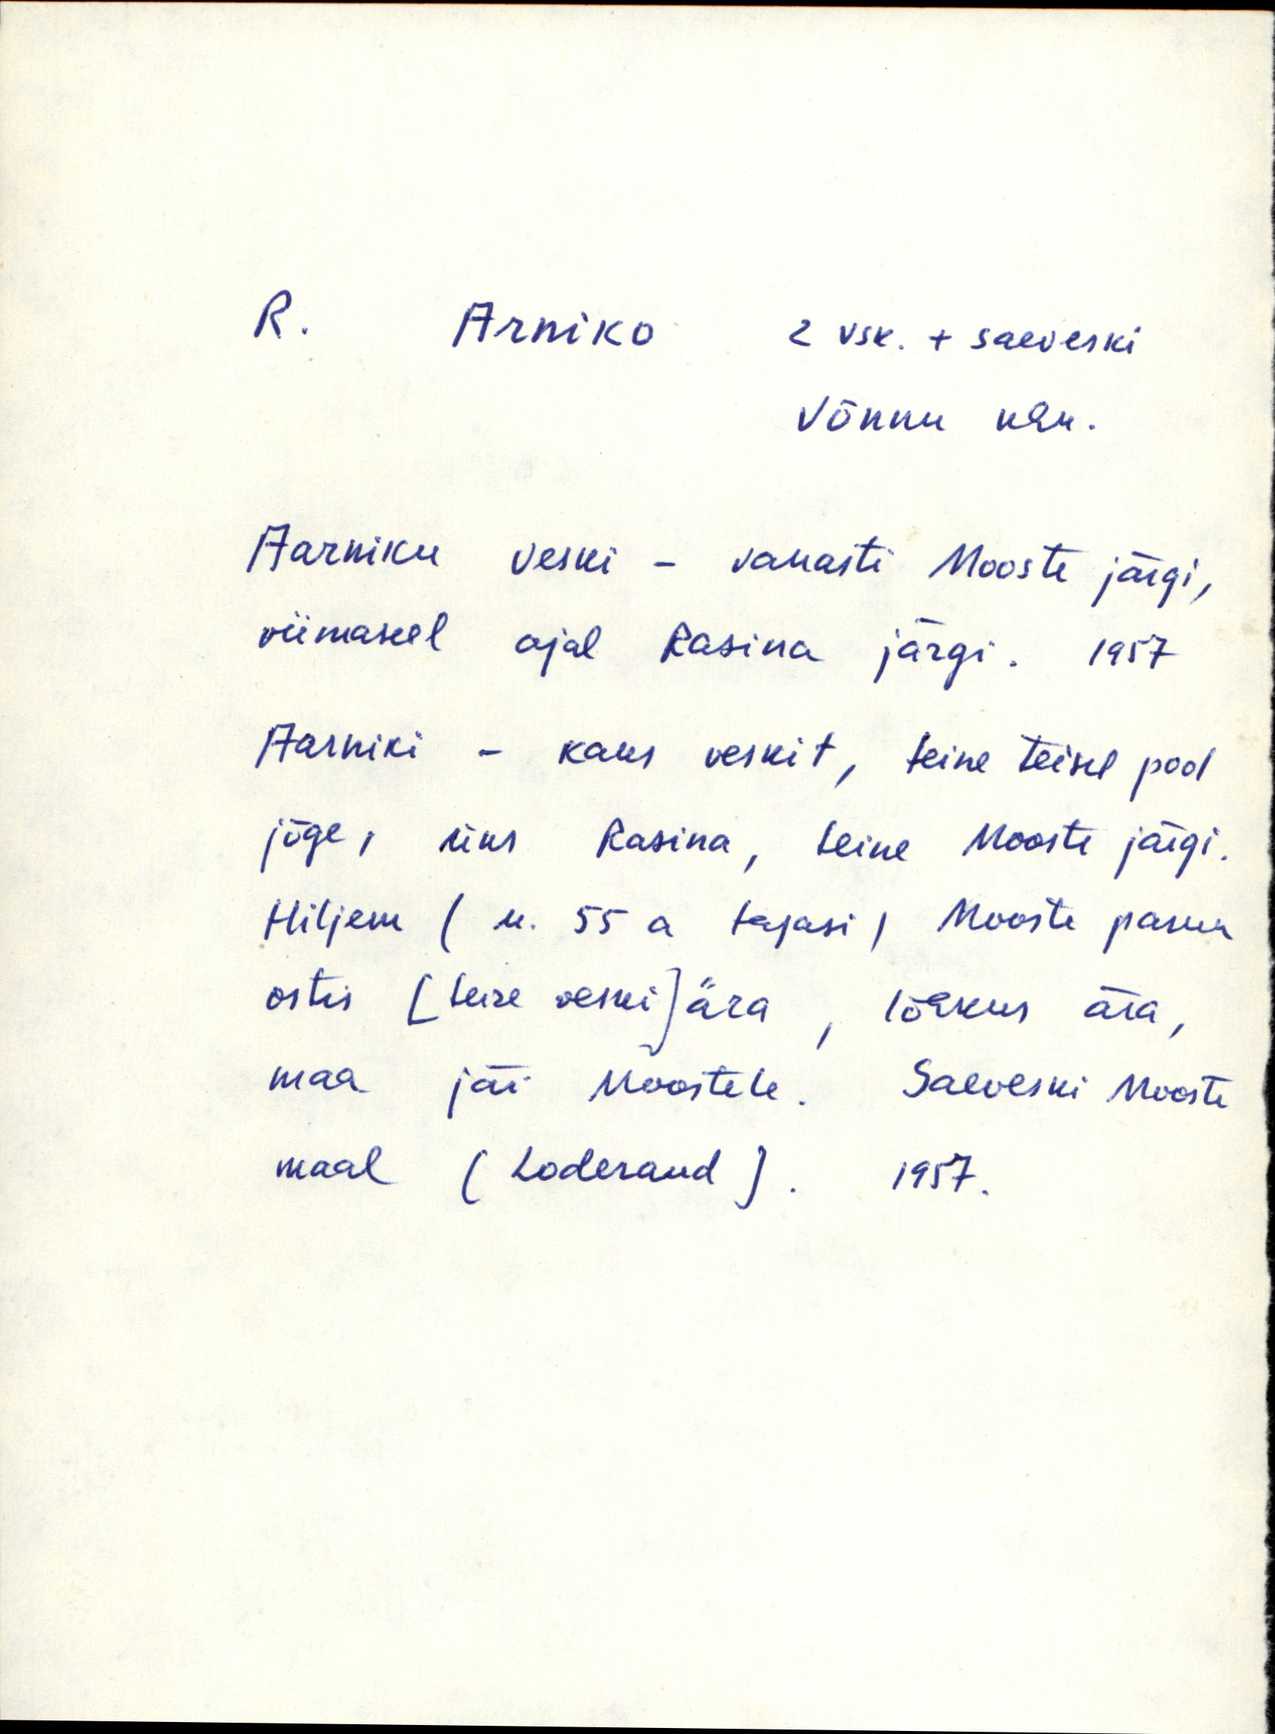 R. Arniko 2 vsk. + saeveski
Võnnu khn.
Aarniku veski – vanasti Mooste järgi,
viimasel ajal Rasina järgi. 1957
Aarniki – kaks veskit, teine teisel pool
jõge, üks Rasina, teine Mooste järgi.
Hiljem ( u. 55 a tagasi) Mooste parun
ostis [teise veski] ära , lõhkus ära,
maa jäi Moostele. Saeveski Mooste
maal (Loderand). 1957.